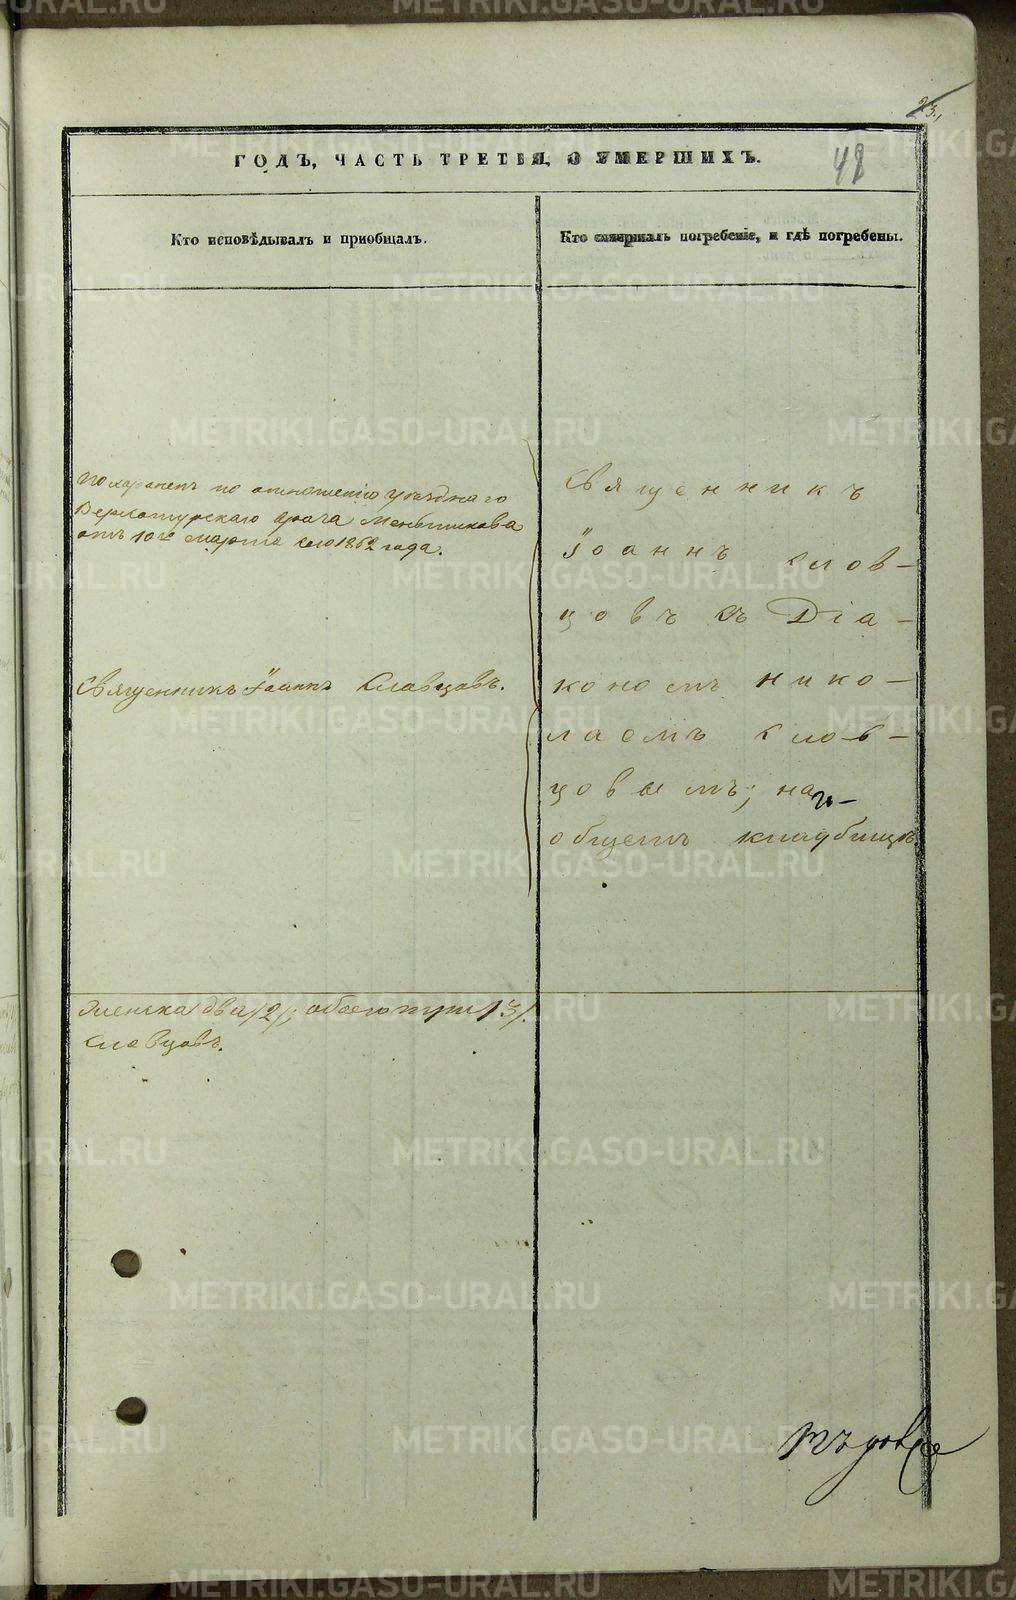 23.
ГОДЪ, ЧАСТЬ ТРЕТЬЯ, О УМЕРШИХЪ.
48
Кто исповѣдывалъ и пріобщалъ.
Кто совершалъ погребеніе, и гдѣ погребены.
Похороненъ по отношенію уѣзднаго
Верхотурскаго врача Меньшикова
отъ 10го марта сего 1862 года.
Священникъ Іоаннъ Словцовъ.
Священникъ
Іоаннъ Слов-
цовъ съ Діа-
кономъ Нико-
лаемъ Слов-
цовымъ; на
общемъ кладбищѣ.
женска два /2/; обоего три /3/.
Словцовъ.
METRIKI.GASO-URAL.RU